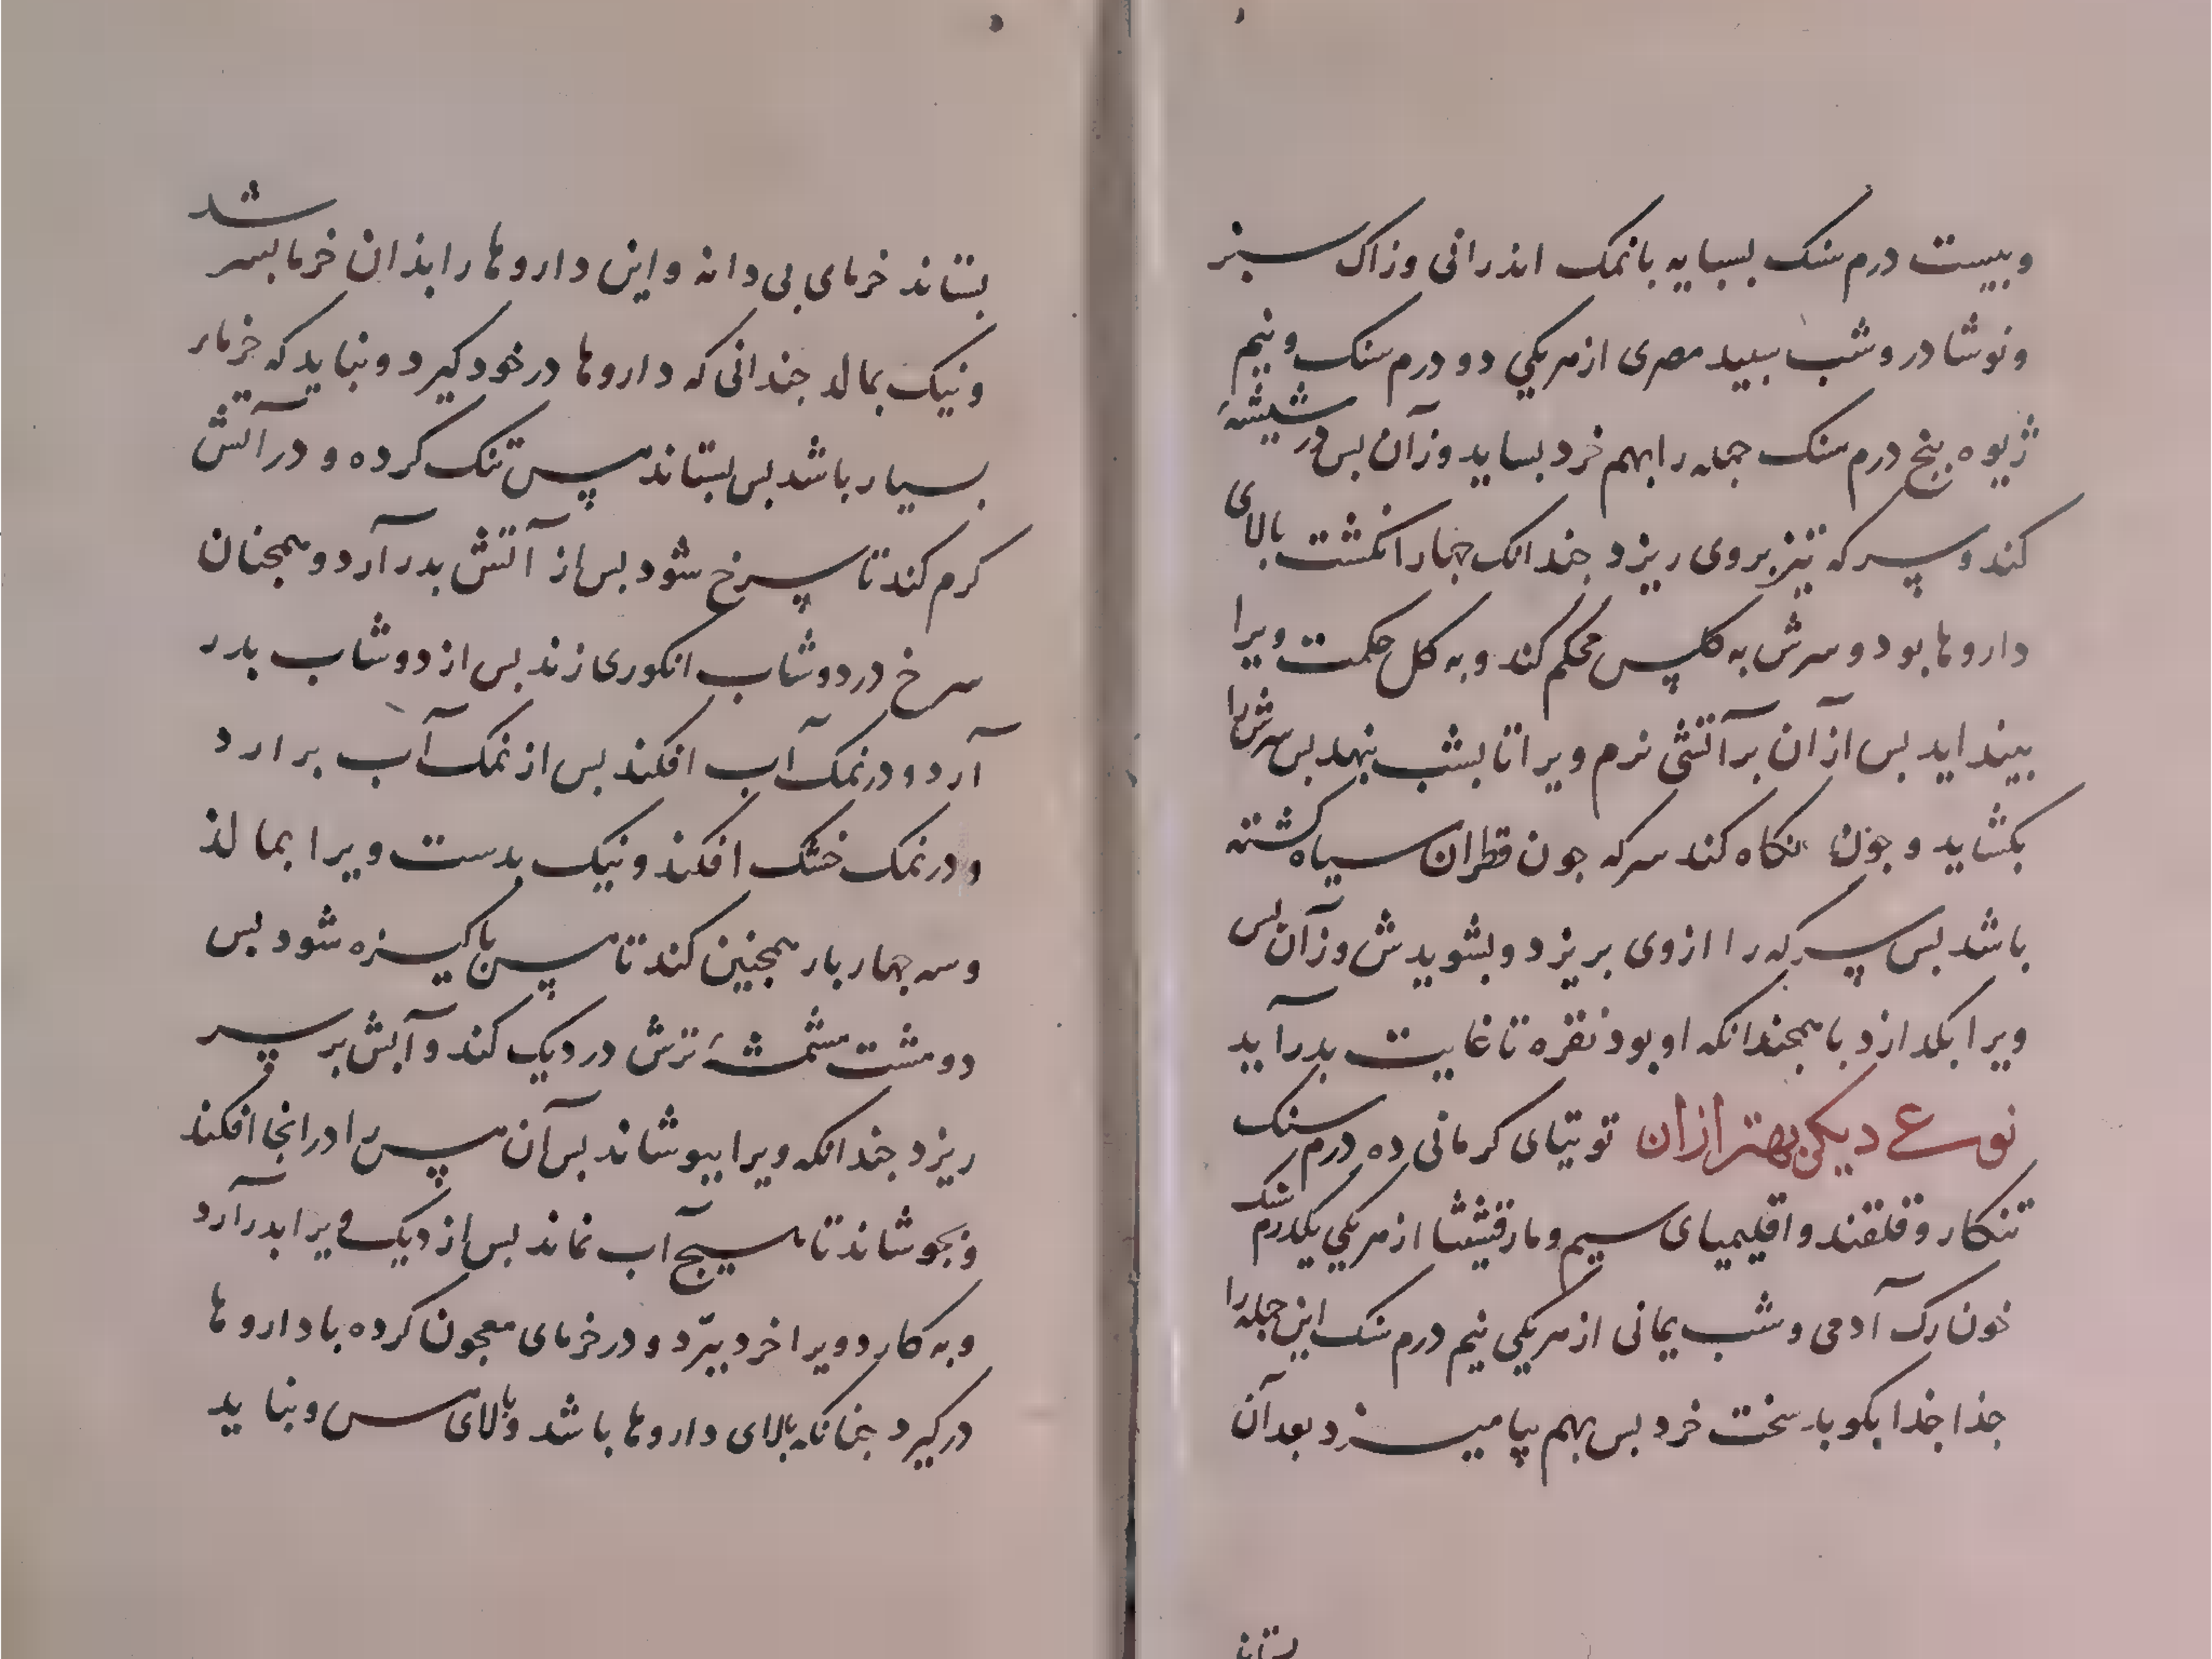 وبیست درم سنک بسبایه بانمک اندرانی وزاک سبز
ونوشادر وشب سبید مصری ازمریکی دو درم سنک ونیم
ژیوه بنج درم سنک جمله رابهم خرد بساید وزآن بس در شیشهٔ
کند وسرکه تیز بروی ریزد جندانک جهار انکشت بالای
داروها بود وسرش به کلس محکم کند وبه کل حکمت ویرا
بینداید بس ازآن برآتشی نرم ویرا تا بشب بنهد بس سرش را
بکشاید وجون نکاه کند سرکه جون قطران سیاه کشته
باشد بس سرکه را ازوی بریزد وبشویدش وزآن بس
ویرا بکدازد باهمجندانکه اوبود نقره تا غایت بدرآید
نوع دیکر بهتر ازان توتیای کرمانی ده درم سنک
تنکار وقلقند واقلیمیای سیم ومارقشیشا ازمریکی یکدرم سنک
خون رک آدمی وشب یمانی ازمریکی نیم درم سنک این جمله را
جذا جذا بکوبد سخت خرد بس بهم بیامیزد بعد آن
بستاند
بستاند خرمای بی دانه واین داروها رابذان خرما بسرشد
ونیک بمالد جندانی که داروها درخود کیرد ونباید که خرمار
بسیار باشد بس بستاند مس تنک کرده و درآتش
کرم کند تا سرخ شود بس از آتش بدرآرد وهمجنان
سرخ دردوشاب انکوری زند بس از دوشاب بدر
آرد ودرنمک آب افکند بس از نمک آب برارد
ودرنمک خشک افکند ونیک بدست ویرا بمالذ
وسه جهار بار همجنین کند تا مس باکیزه شود بس
دومشت مشمشهٔ ترش دردیک کند وآبش بر سر
ریزد جندانکه ویرا ببوشاند بس آن مس را درانجا افکند
وبجوشاند تا هیج آب نماند بس از دیک ویرا بدرآرد
وبه کارد ویرا خرد ببرّد و درخرمای معجون کرده با داروها
درکیرد جنانکه بالای داروها باشد وبالای مس ونباید